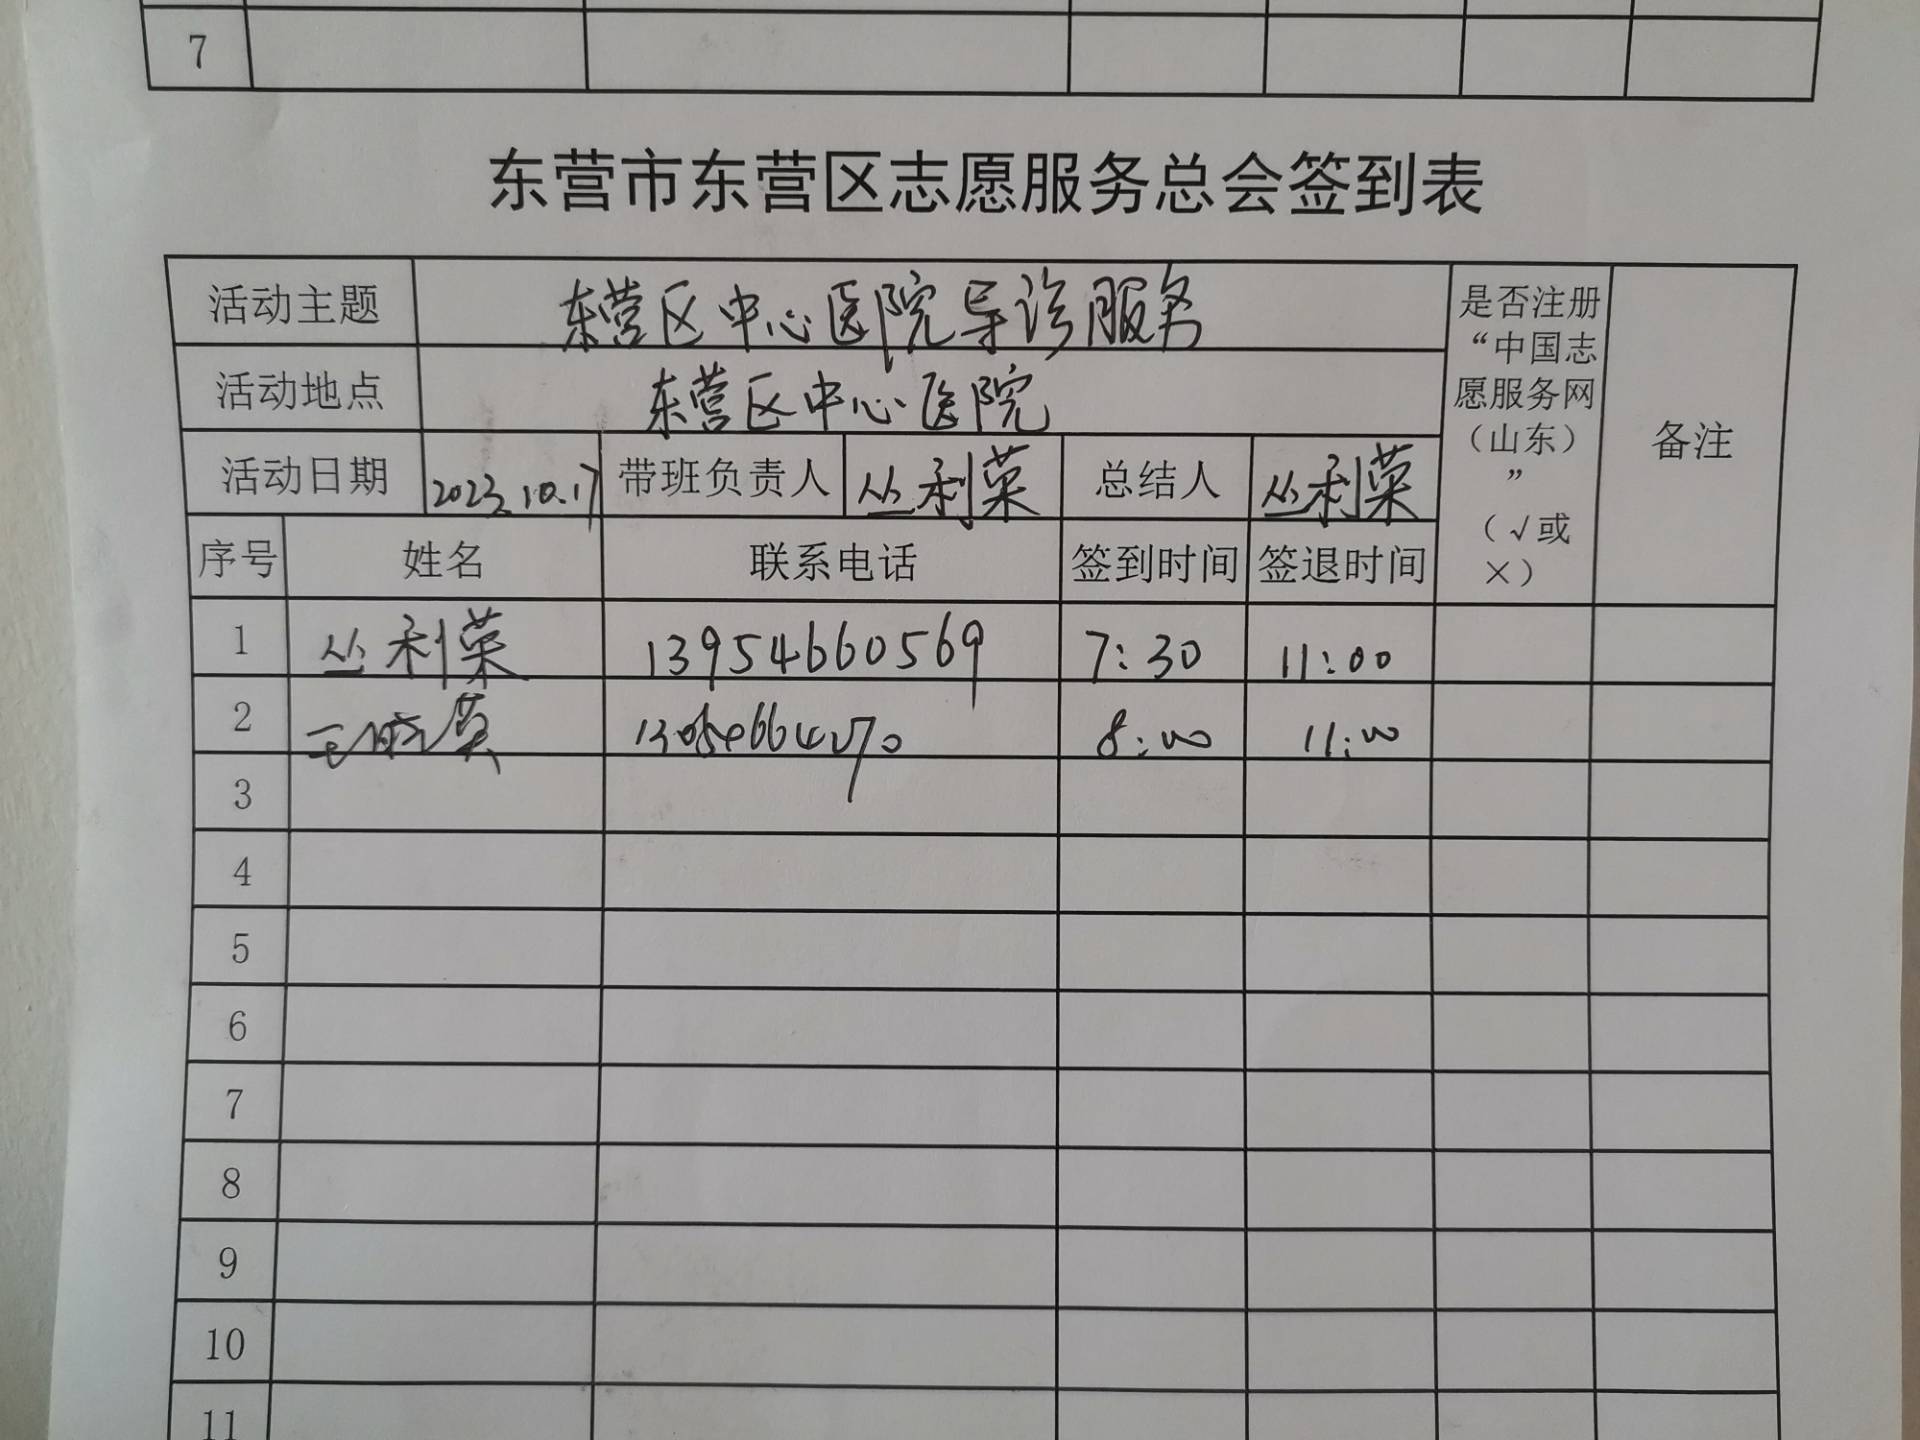 7
东营市东营区志愿服务总会签到表
活动主题 东营区中心医院导诊服务
是否注册
“中国志
愿服务网
（山东）
”
（√或
×）
备注
活动地点 东营区中心医院
活动日期 2023.10.17 带班负责人 丛利荣 总结人 丛利荣
序号 姓名 联系电话 签到时间 签退时间
1 丛利荣 13954660569 7:30 11:00
2 8:00 11:00
3
4
5
6
7
8
9
10
11